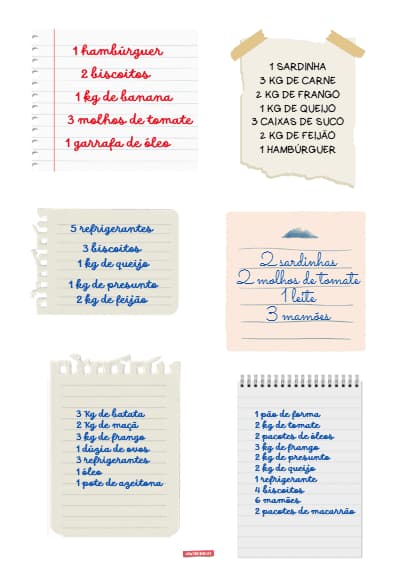 1 hambúrguer
2 biscoitos
1 kg de banana
3 molhos de tomate
1 garrafa de óleo
1 SARDINHA
3 KG DE CARNE
2 KG DE FRANGO
1 KG DE QUEIJO
3 CAIXAS DE SUCO
2 KG DE FEIJÃO
1 HAMBÚRGUER
5 refrigerantes
3 biscoitos
1 kg de queijo
1 kg de presunto
2 kg de feijão
2 sardinhas
2 molhos de tomate
1 leite
3 mamões
3 Kg de batata
2 Kg de maçã
3 kg de frango
1 dúzia de ovos
3 refrigerantes
1 óleo
1 pote de azeitona
1 pão de forma
2 kg de tomate
2 pacotes de óleos
3 kg de frango
2 kg de presunto
2 kg de queijo
1 refrigerante
4 biscoitos
6 mamões
2 pacotes de macarrão